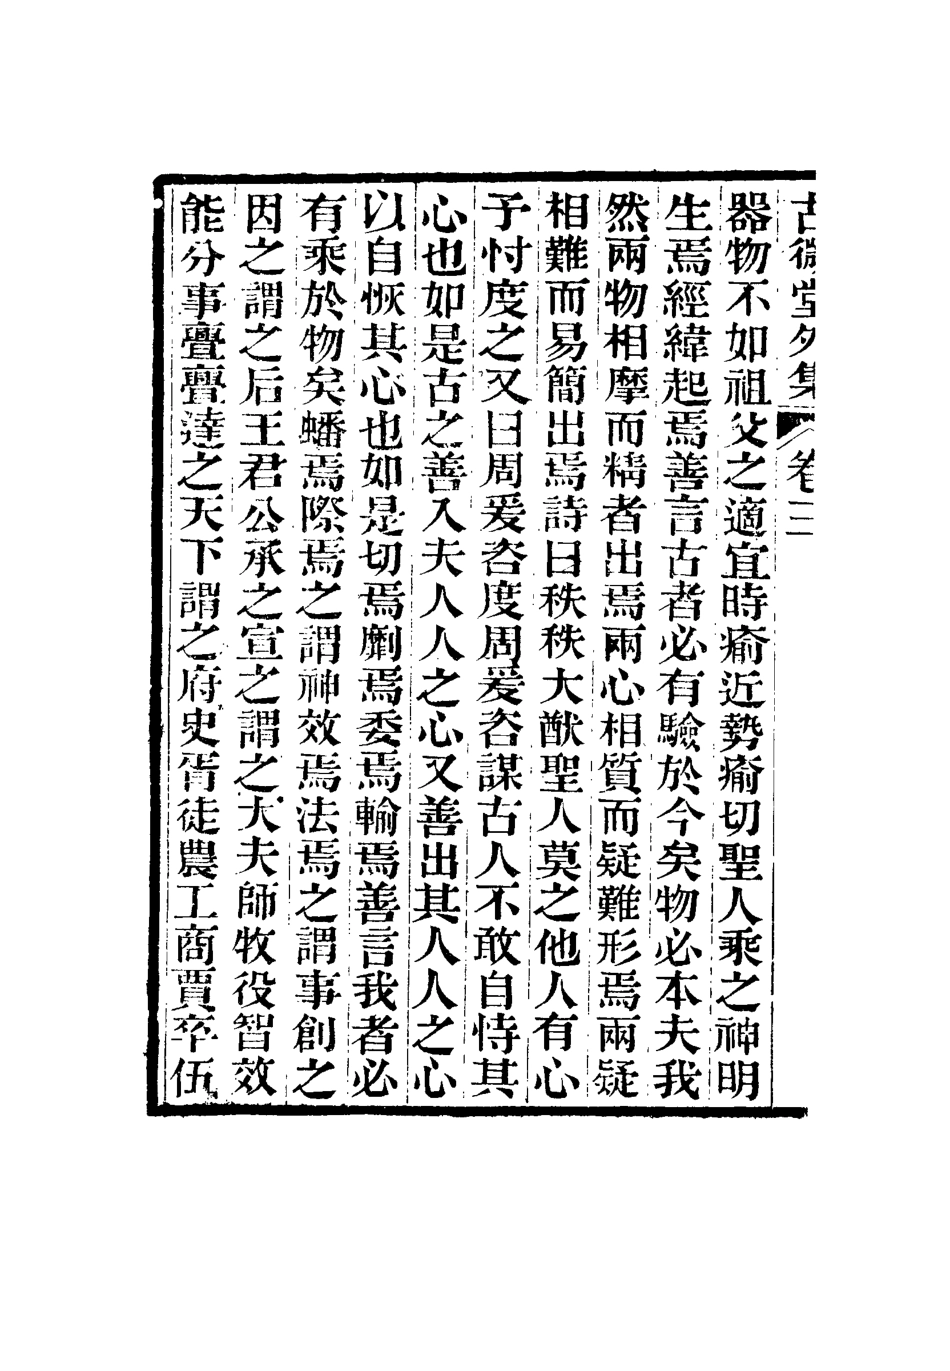 古微堂外集 卷三
器物不如祖父之適宜時瘉近勢瘉切聖人乘之神明
生焉經緯起焉善言古者必有驗於今矣物必本夫我
然兩物相摩而精者出焉兩心相質而疑難形焉兩疑
相難而易簡出焉詩曰秩秩大猷聖人莫之他人有心
予忖度之又曰周爰咨度周爰咨謀古人不敢自恃其
心也如是古之善入夫人人之心又善出其人人之心
以自恢其心也如是切焉劘焉委焉輸焉善言我者必
有乘於物矣蟠焉際焉之謂神效焉法焉之謂事創之
因之謂之后王君公承之宣之謂之大夫師牧役智效
能分事亹亹達之天下謂之府史胥徒農工商賈卒伍